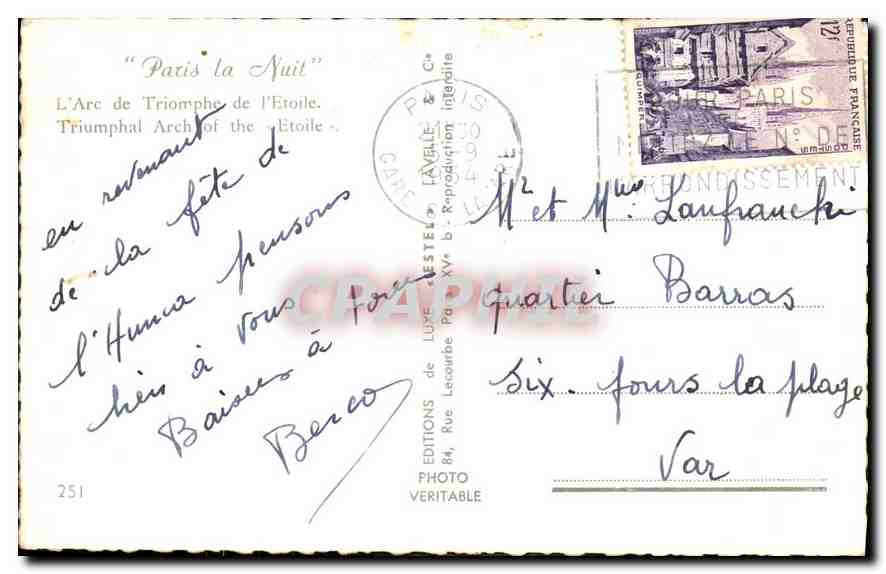 "Paris la Nuit"
L'Arc de Triomphe de l'Etoile.
Triumphal Arch of the «Etoile».
en revenant
de la fête de
l'Huma pensons
bien à vous
Baisers à tous
Berco
251
EDITIONS de LUXE «ESTEL» LAVELLE & Cie
84, Rue Lecourbe Paris XVe b - Reproduction Interdite
PHOTO
VERITABLE
PARIS
GARE
12f
REPUBLIQUE FRANÇAISE
QUIMPER
POSTES
POUR PARIS
N° DE
ARRONDISSEMENT
Mr et Mme Lanfranchi
quartier Barras
Six-fours la plage
Var
CPAPHIL